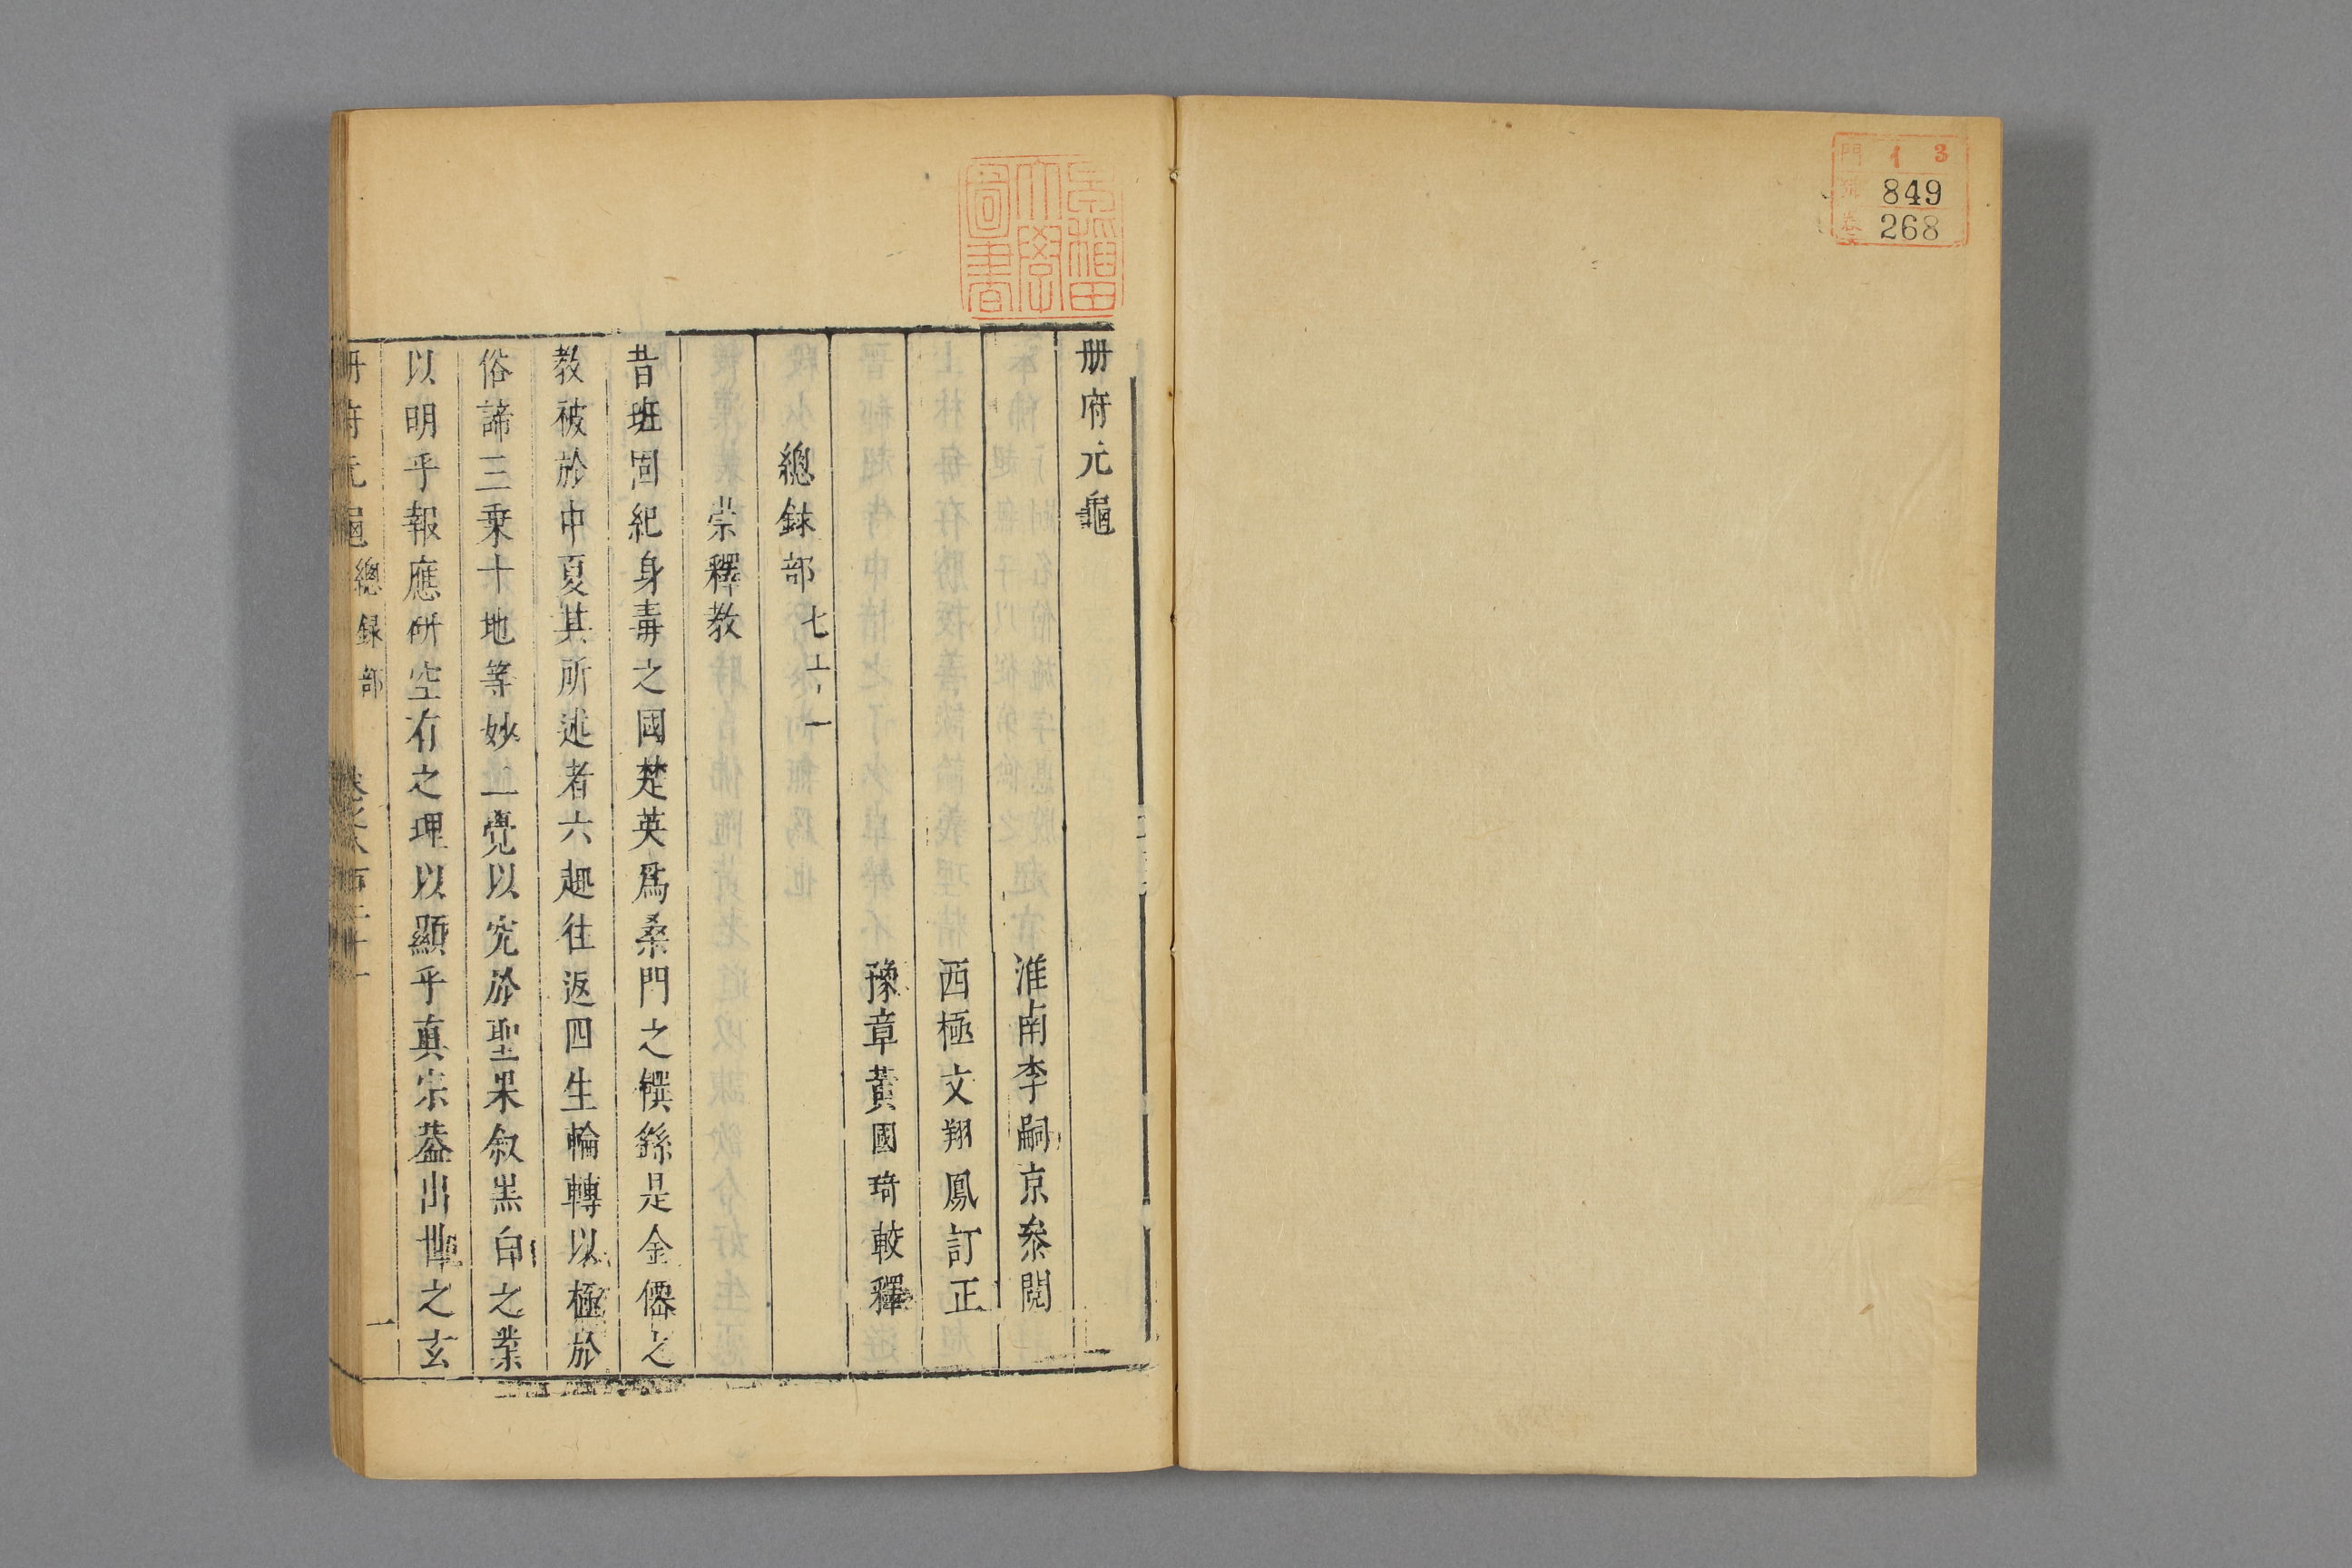 門 イ 3
號 849
卷 268
早稲田
大學
圖書
册府元龜
淮南李嗣京叅閱
西極文翔鳳訂正
豫章黃國琦較釋
總録部 七十一
崇釋教
昔班固紀身毒之國楚英爲桑門之饌繇是金僊之
教被於中夏其所述者六趣往返四生輪轉以極於
俗諦三乗十地等妙二覺以究於聖果叙黒白之業
以明乎報應硏空有之理以顯乎真宗葢出世之玄
册府元龜 總録部 卷之八百二十一
一